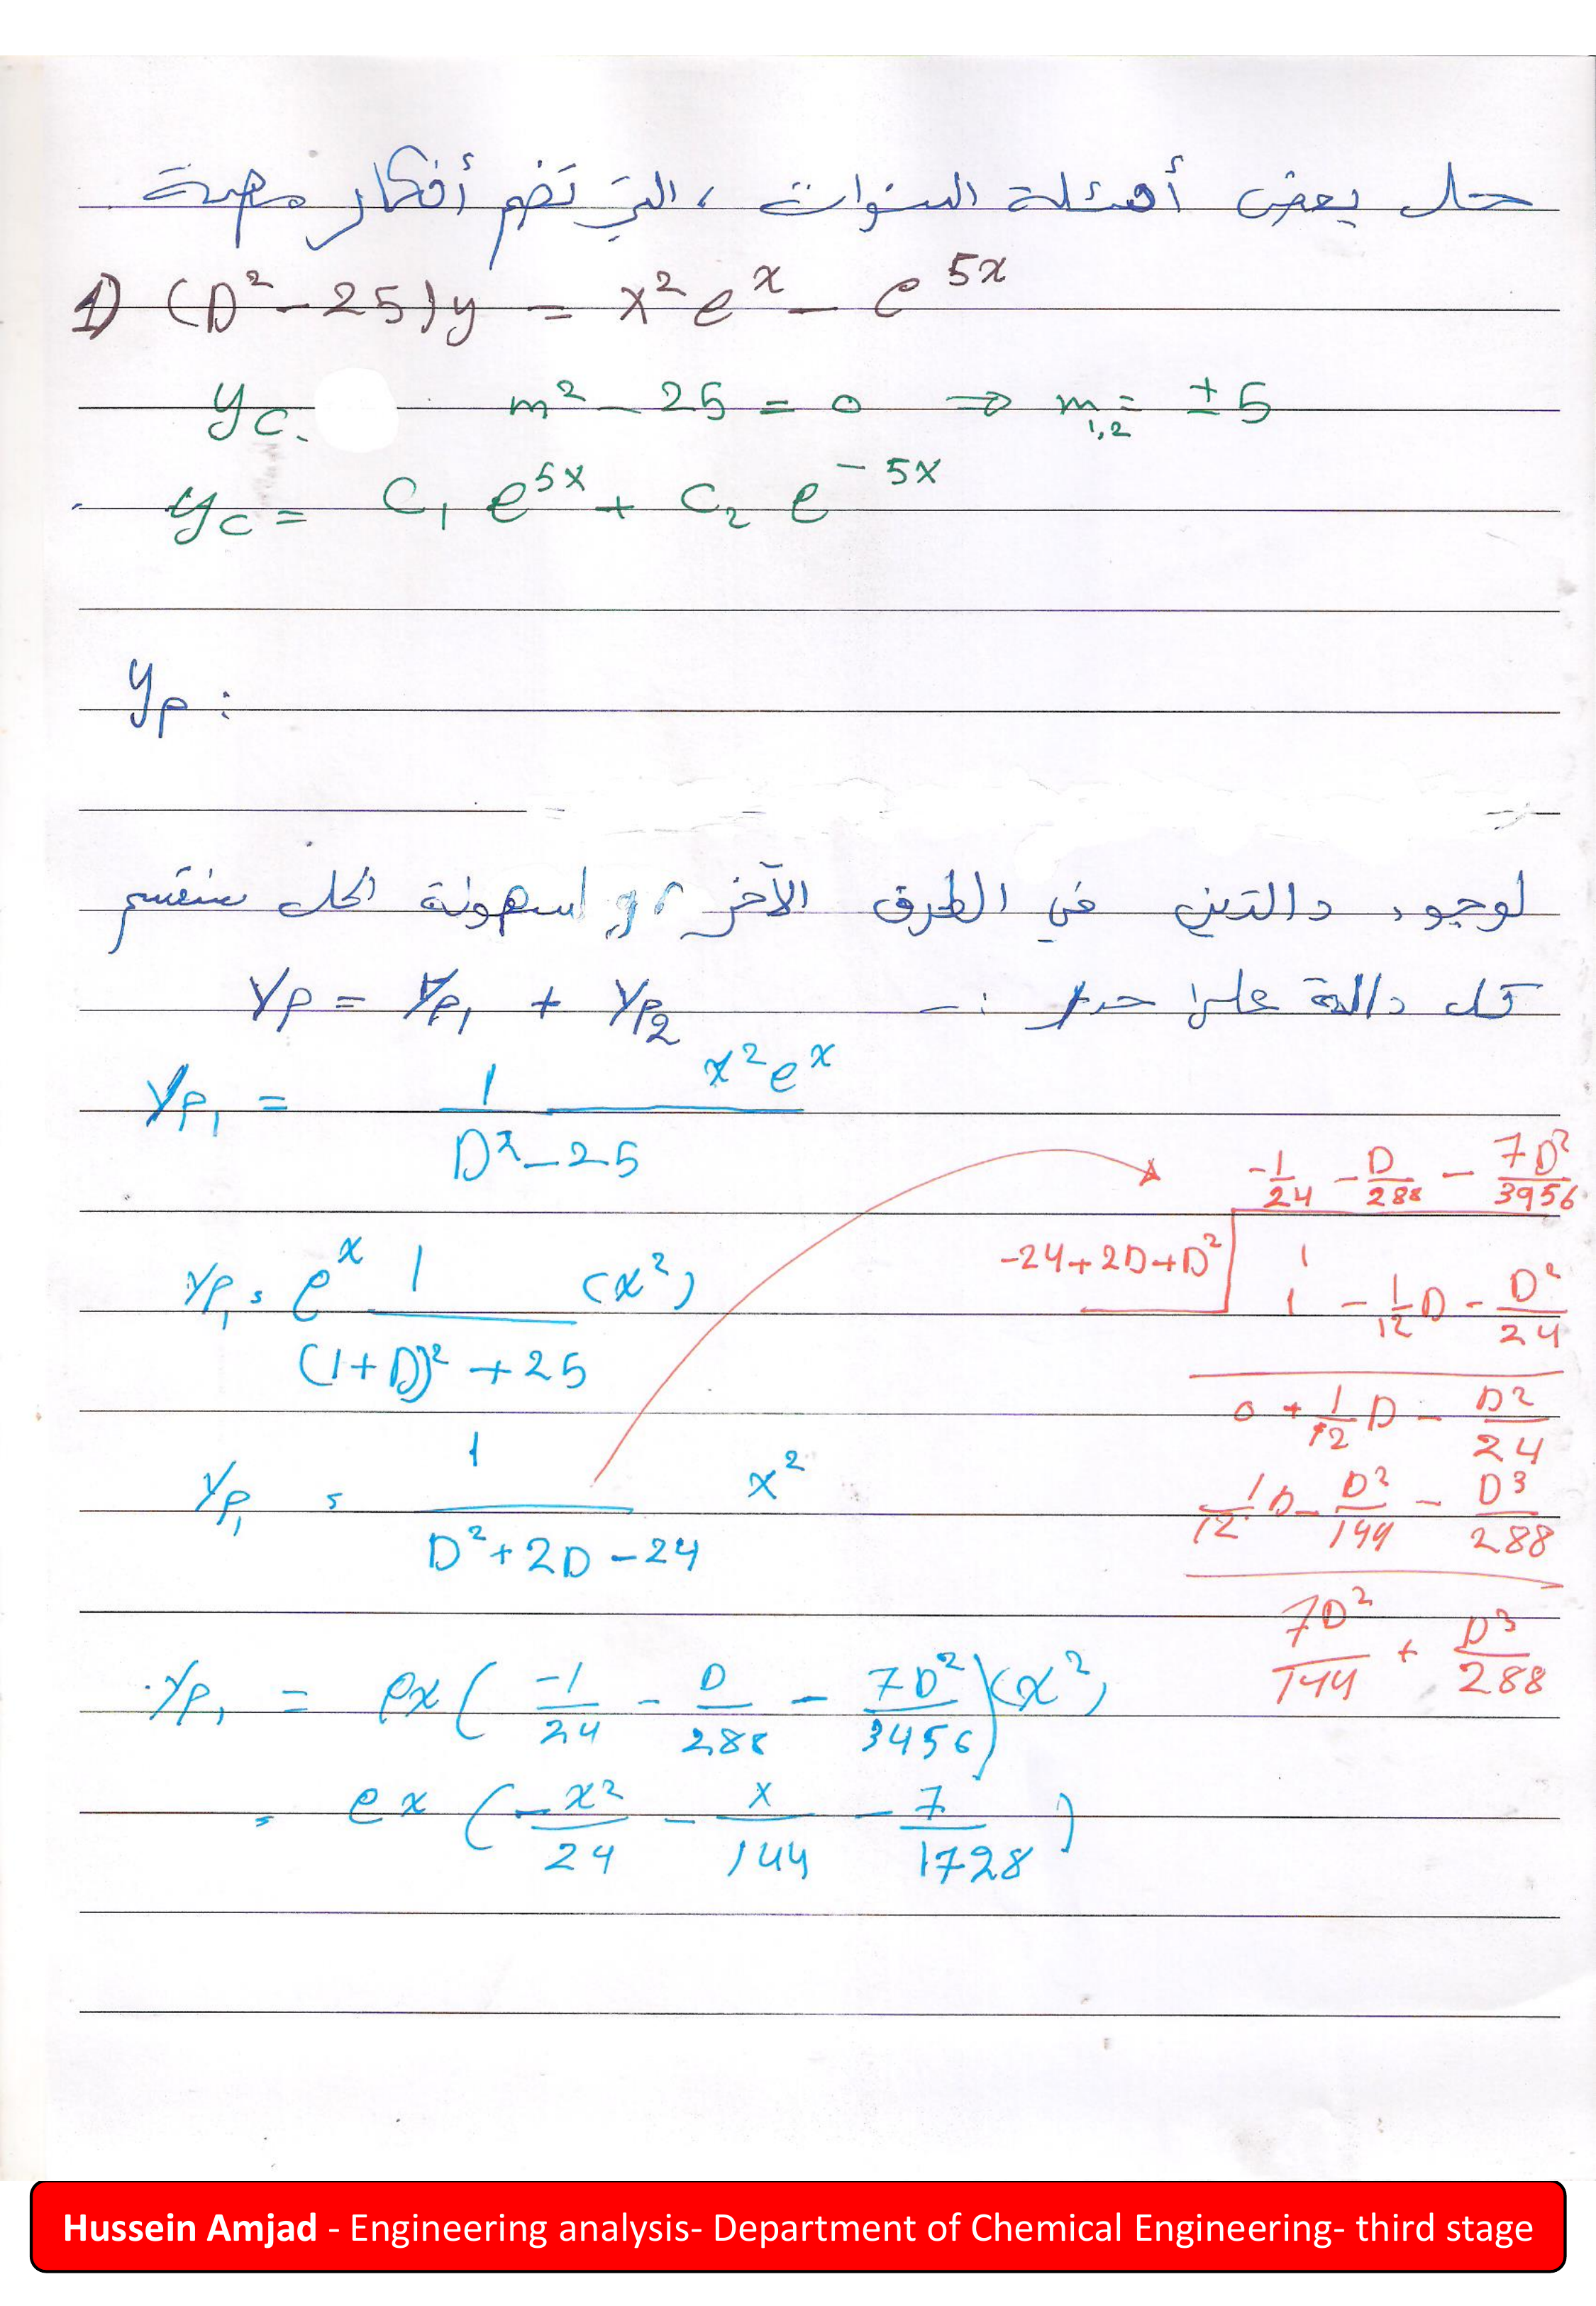 حل بعض أسئلة السنوات ، التي تضم أفكار مهمة
1) (D² - 25)y = x² e^x - e^5x
y_c. m² - 25 = 0 ⇒ m_1,2 = ± 5
y_c = C_1 e^5x + C_2 e^-5x
y_p :
لوجود دالتين في الطرق الآخر ، و لسهولة الحل سنقسم
كل دالة على حدى :-
y_p = y_p1 + y_p2
y_p1 = 1/(D² - 25) x² e^x
y_p1 = e^x 1/((1+D)² + 25) (x²)
y_p1 = 1/(D² + 2D - 24) x²
-1/24 - D/288 - 7D²/3956
-24+2D+D² 1
1 - 1/12 D - D²/24
0 + 1/12 D - D²/24
1/12 D - D²/144 - D³/288
7D²/144 + D³/288
y_p1 = ex ( -1/24 - D/288 - 7D²/3456 ) (x²)
= ex ( -x²/24 - x/144 - 7/1728 )
Hussein Amjad - Engineering analysis- Department of Chemical Engineering- third stage